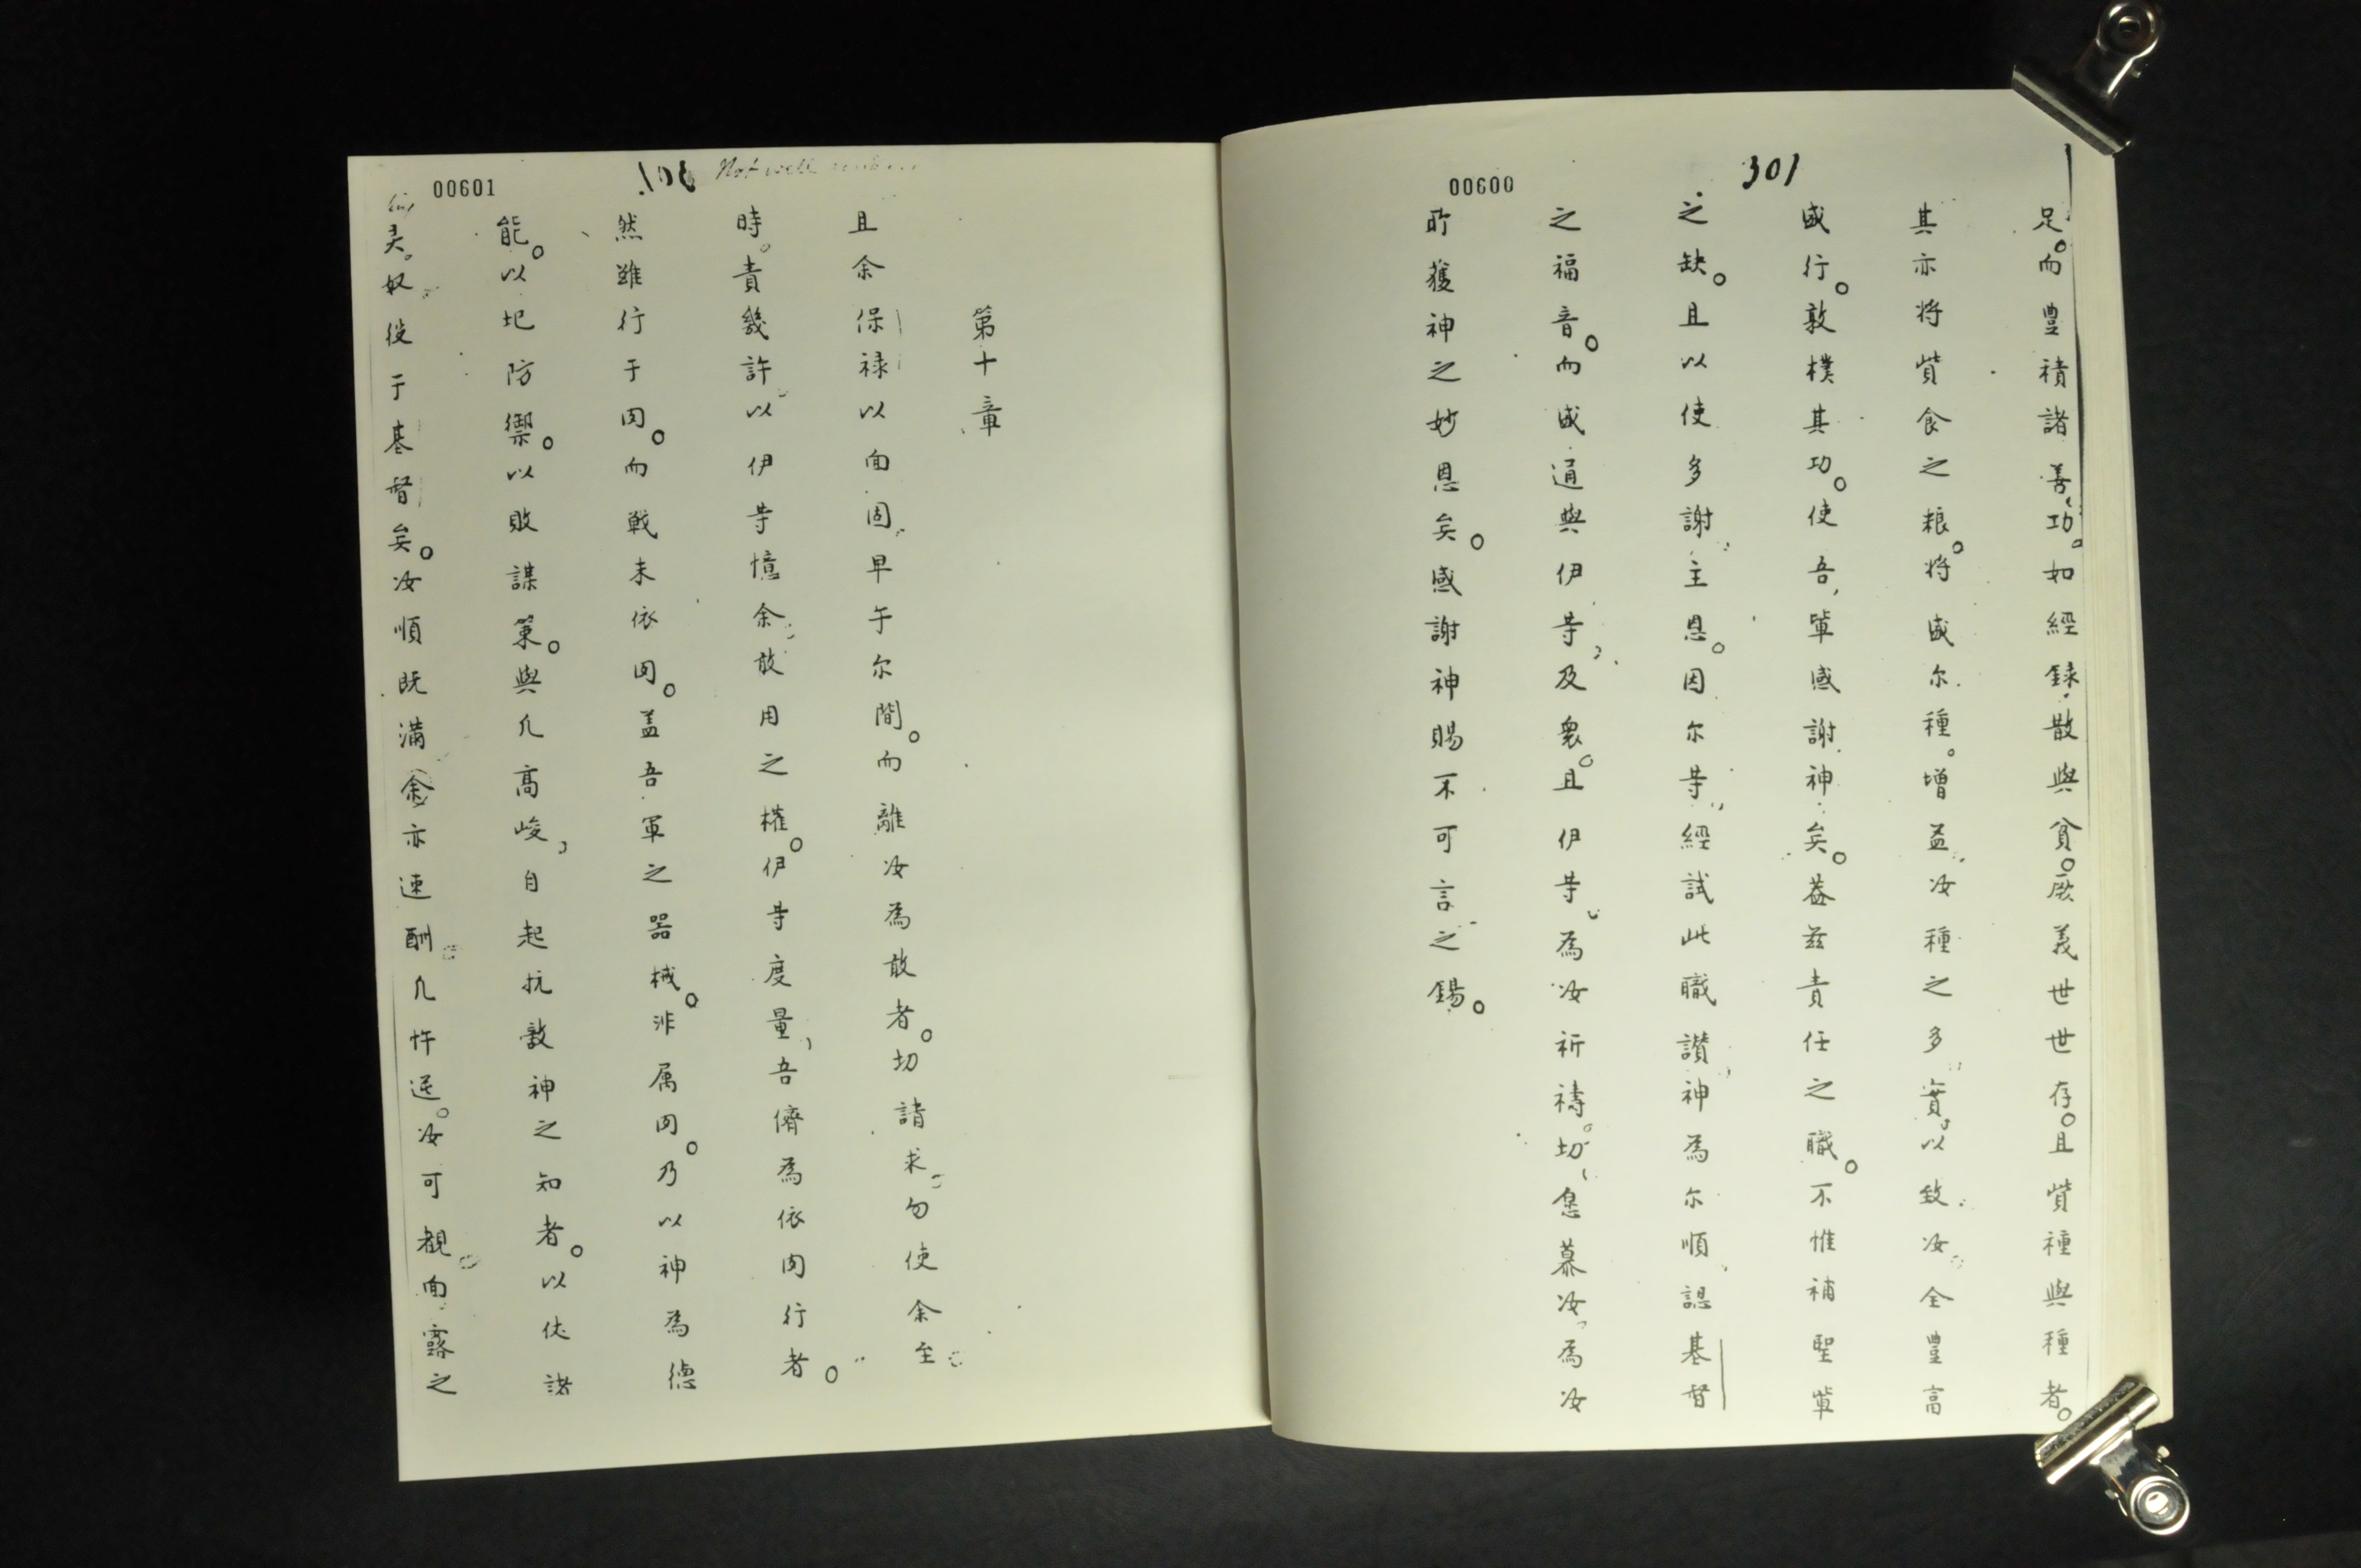 00600
301
足。而豊積諸善功。如經録散與貧。厥義世世存。且貲種與種者。
其亦将貲食之粮。将盛尔種。增益汝種之多實。以致汝全豊高
盛行。敦樸其功。使吾軰感謝神矣。葢兹責任之職。不惟補聖軰
之缺。且以使多謝主恩。因尔䓁經試此職讃神為尔順認基督
之福音。而盛通與伊䓁及衆。且伊䓁為汝祈禱。切戀慕汝為汝
所獲神之妙恩矣。感謝神賜不可言之錫。
00601
Not well
第十章
且余保禄以面固早于尔間。而離汝為敢者。切請求勿使余至
時。責幾許以伊䓁憶余敢用之權。伊䓁度量吾儕為依肉行者。
然雖行于肉。而戦未依肉。盖吾軍之器械。非属肉。乃以神為德
能。以圮防禦。以敗謀策。與凢髙峻自起抗敵神之知者。以伏諸
灵。奴役于基督矣。汝順既满余亦速酬凢忤逆。汝可覩面露之